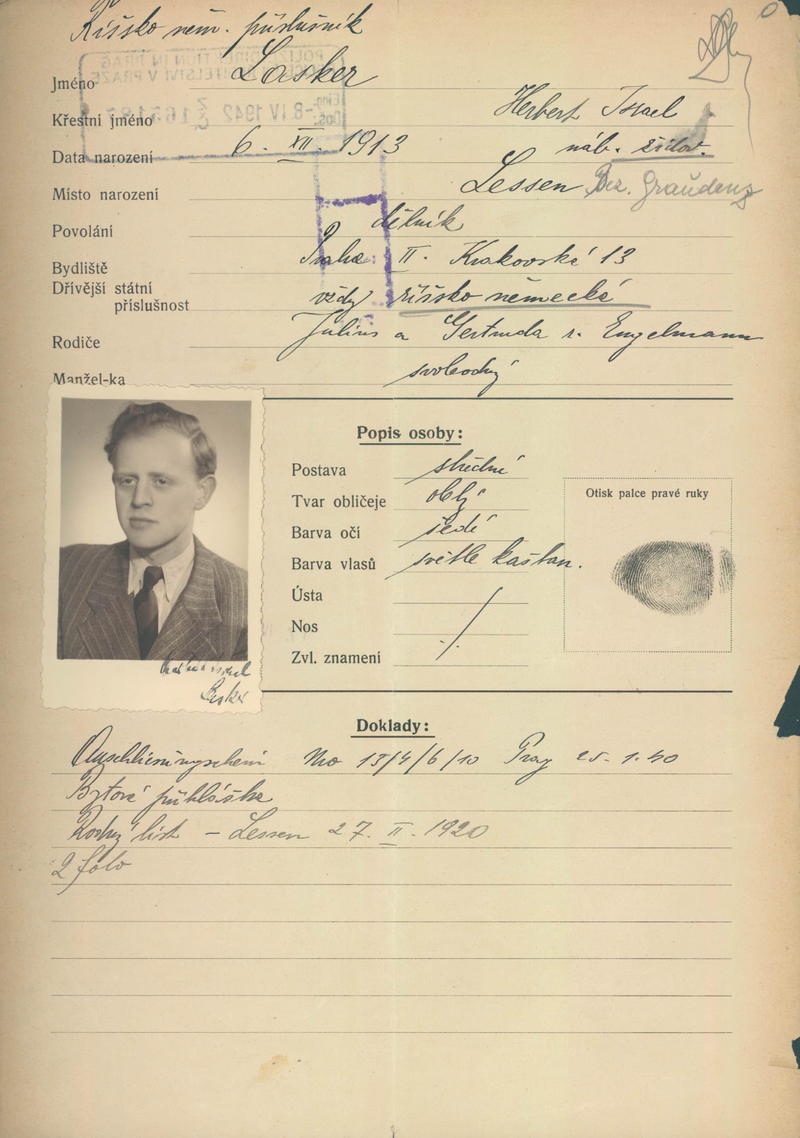 Říšsko něm. příslušník
Jméno Lasker
Křestní jméno Herbert Israel
Data narození 6. XII. 1913 náb. židov.
Místo narození Lessen Bez. Graudenz
Povolání dělník
Bydliště Praha II. Krakovská 13
Dřívější státní
příslušnost vždy říšsko německá
Rodiče Julius a Gertruda r. Engelmann
Manžel-ka svobodný
Popis osoby:
Postava střední
Tvar obličeje oblý
Barva očí šedé
Barva vlasů světle kaštan.
Ústa
Nos
Zvl. znamení
Otisk palce pravé ruky
Lasker
Doklady:
Nro 15/4/6/10 Prag 25. 1. 40
Bytová přihláška
Rodný list – Lessen 27. II. 1920
2 foto